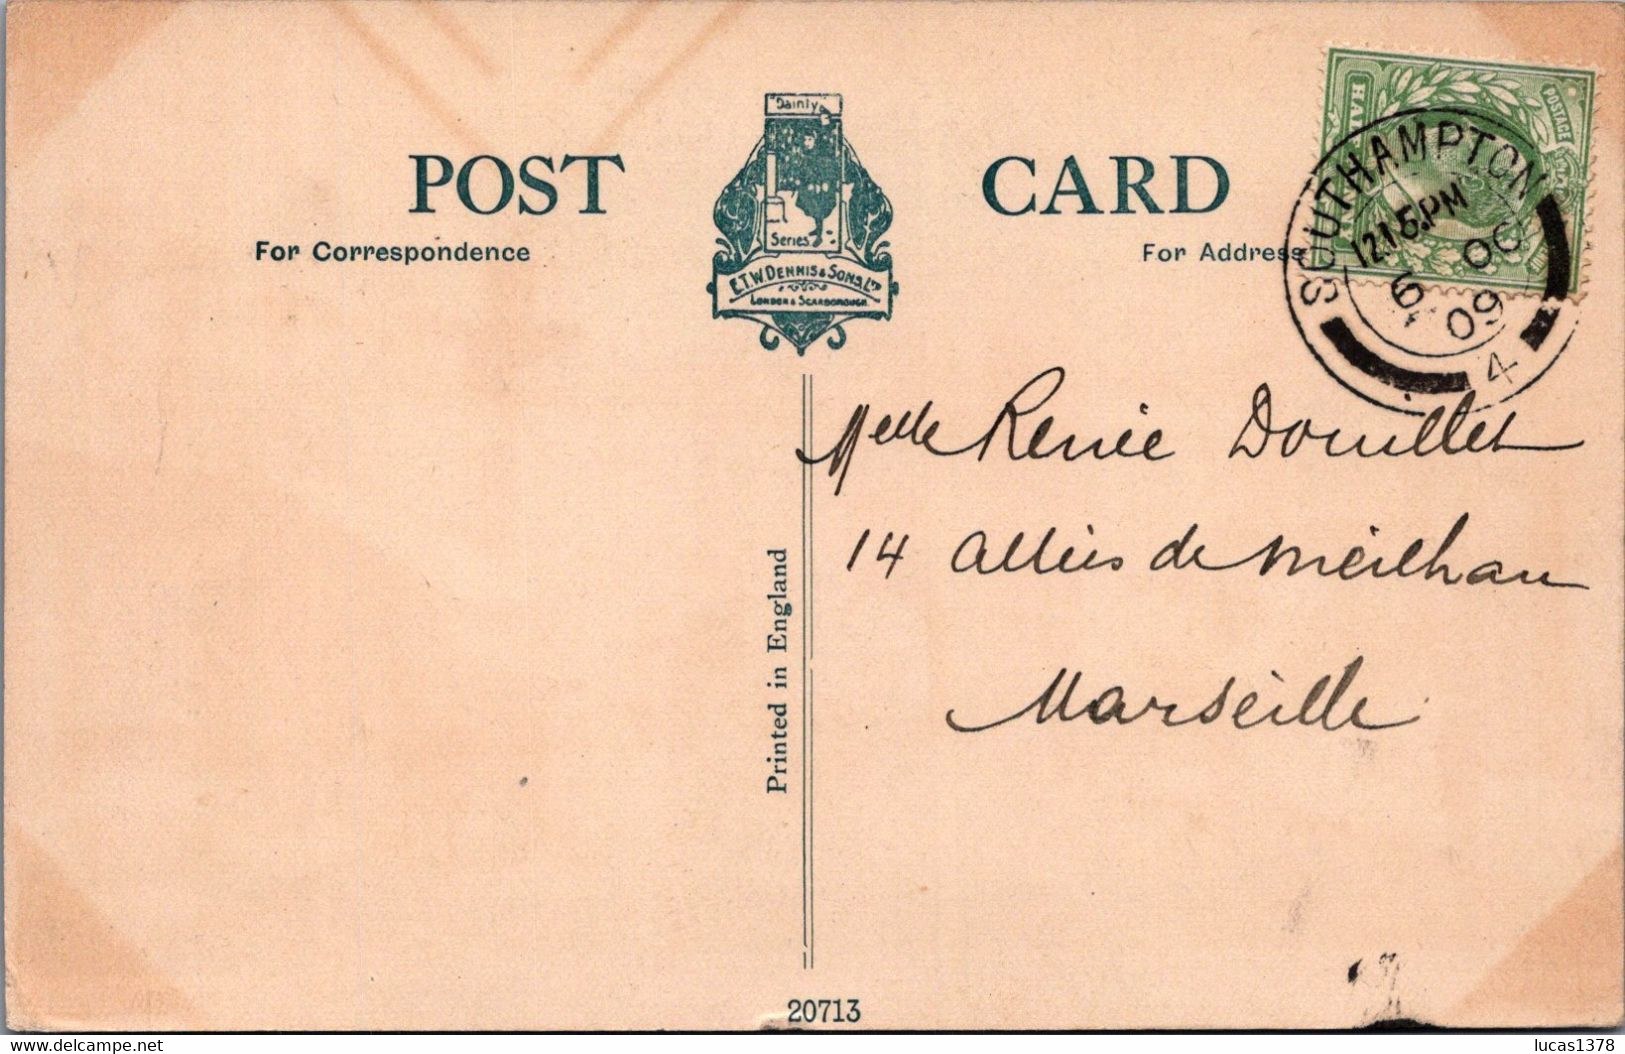 "Dainty"
Series
E.T.W. DENNIS & SONS, LTD
LONDON & SCARBOROUGH
POST CARD
For Correspondence
For Address
POSTAGE
SOUTHAMPTON
12.15 PM
6 OC
09
4
Melle Renée Douillet
14 allées de Meilhan
Marseille
Printed in England
20713
delcampe.net
lucas1378